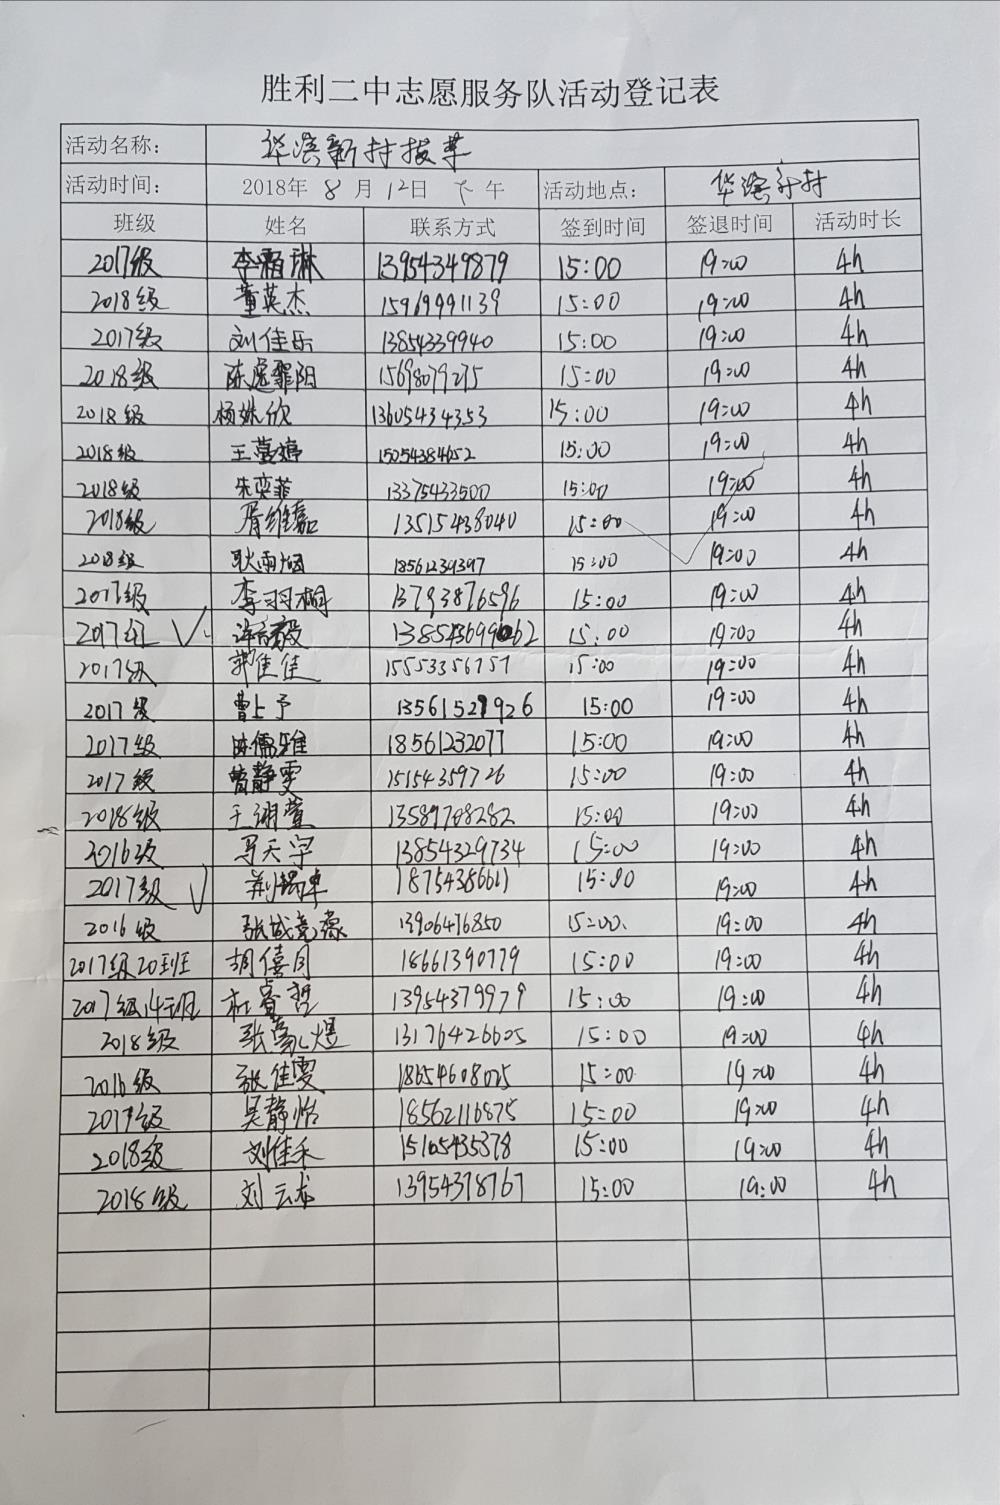 胜利二中志愿服务队活动登记表
活动名称： 华滨新村拔草
活动时间： 2018年 8 月 12日 下 午 活动地点： 华滨新村
班级 姓名 联系方式 签到时间 签退时间 活动时长
2017级 李琳 13954349879 15:00 19:00 4h
2018级 董英杰 15969991139 15:00 19:00 4h
2017级 刘佳乐 13854339940 15:00 19:00 4h
2018级 陈阳 15698079275 15:00 19:00 4h
2018级 杨姝欣 13605434353 15:00 19:00 4h
2018级 王婷 15054384652 15:00 19:00 4h
2018级 朱奕菲 13375433500 15:00 19:00 4h
2018级 胥维嘉 13515438040 15:00 19:00 4h
2018级 耿雨烟 18561239397 15:00 19:00 4h
2017级 李羽桐 13793876596 15:00 19:00 4h
2017级 许毅 15:00 19:00 4h
2017级 郭佳佳 15553356757 15:00 19:00 4h
2017级 曹上予 13561527926 15:00 19:00 4h
2017级 陈儒雅 18561232077 15:00 19:00 4h
2017级 曾静雯 15154359726 15:00 19:00 4h
2018级 王翊萱 13589708282 15:00 19:00 4h
2016级 马天宇 13854329734 15:00 19:00 4h
2017级 荆 18754386611 15:00 19:00 4h
2016级 张城 13906476850 15:00 19:00 4h
2017级20班 胡僖月 18661390779 15:00 19:00 4h
2017级14班 杜睿哲 13954379979 15:00 19:00 4h
2018级 张煜 13176426605 15:00 19:00 4h
2016级 张佳雯 18654608025 15:00 19:00 4h
2017级 吴静怡 18562116875 15:00 19:00 4h
2018级 刘佳禾 15105435378 15:00 19:00 4h
2018级 刘云龙 13954378767 15:00 19:00 4h